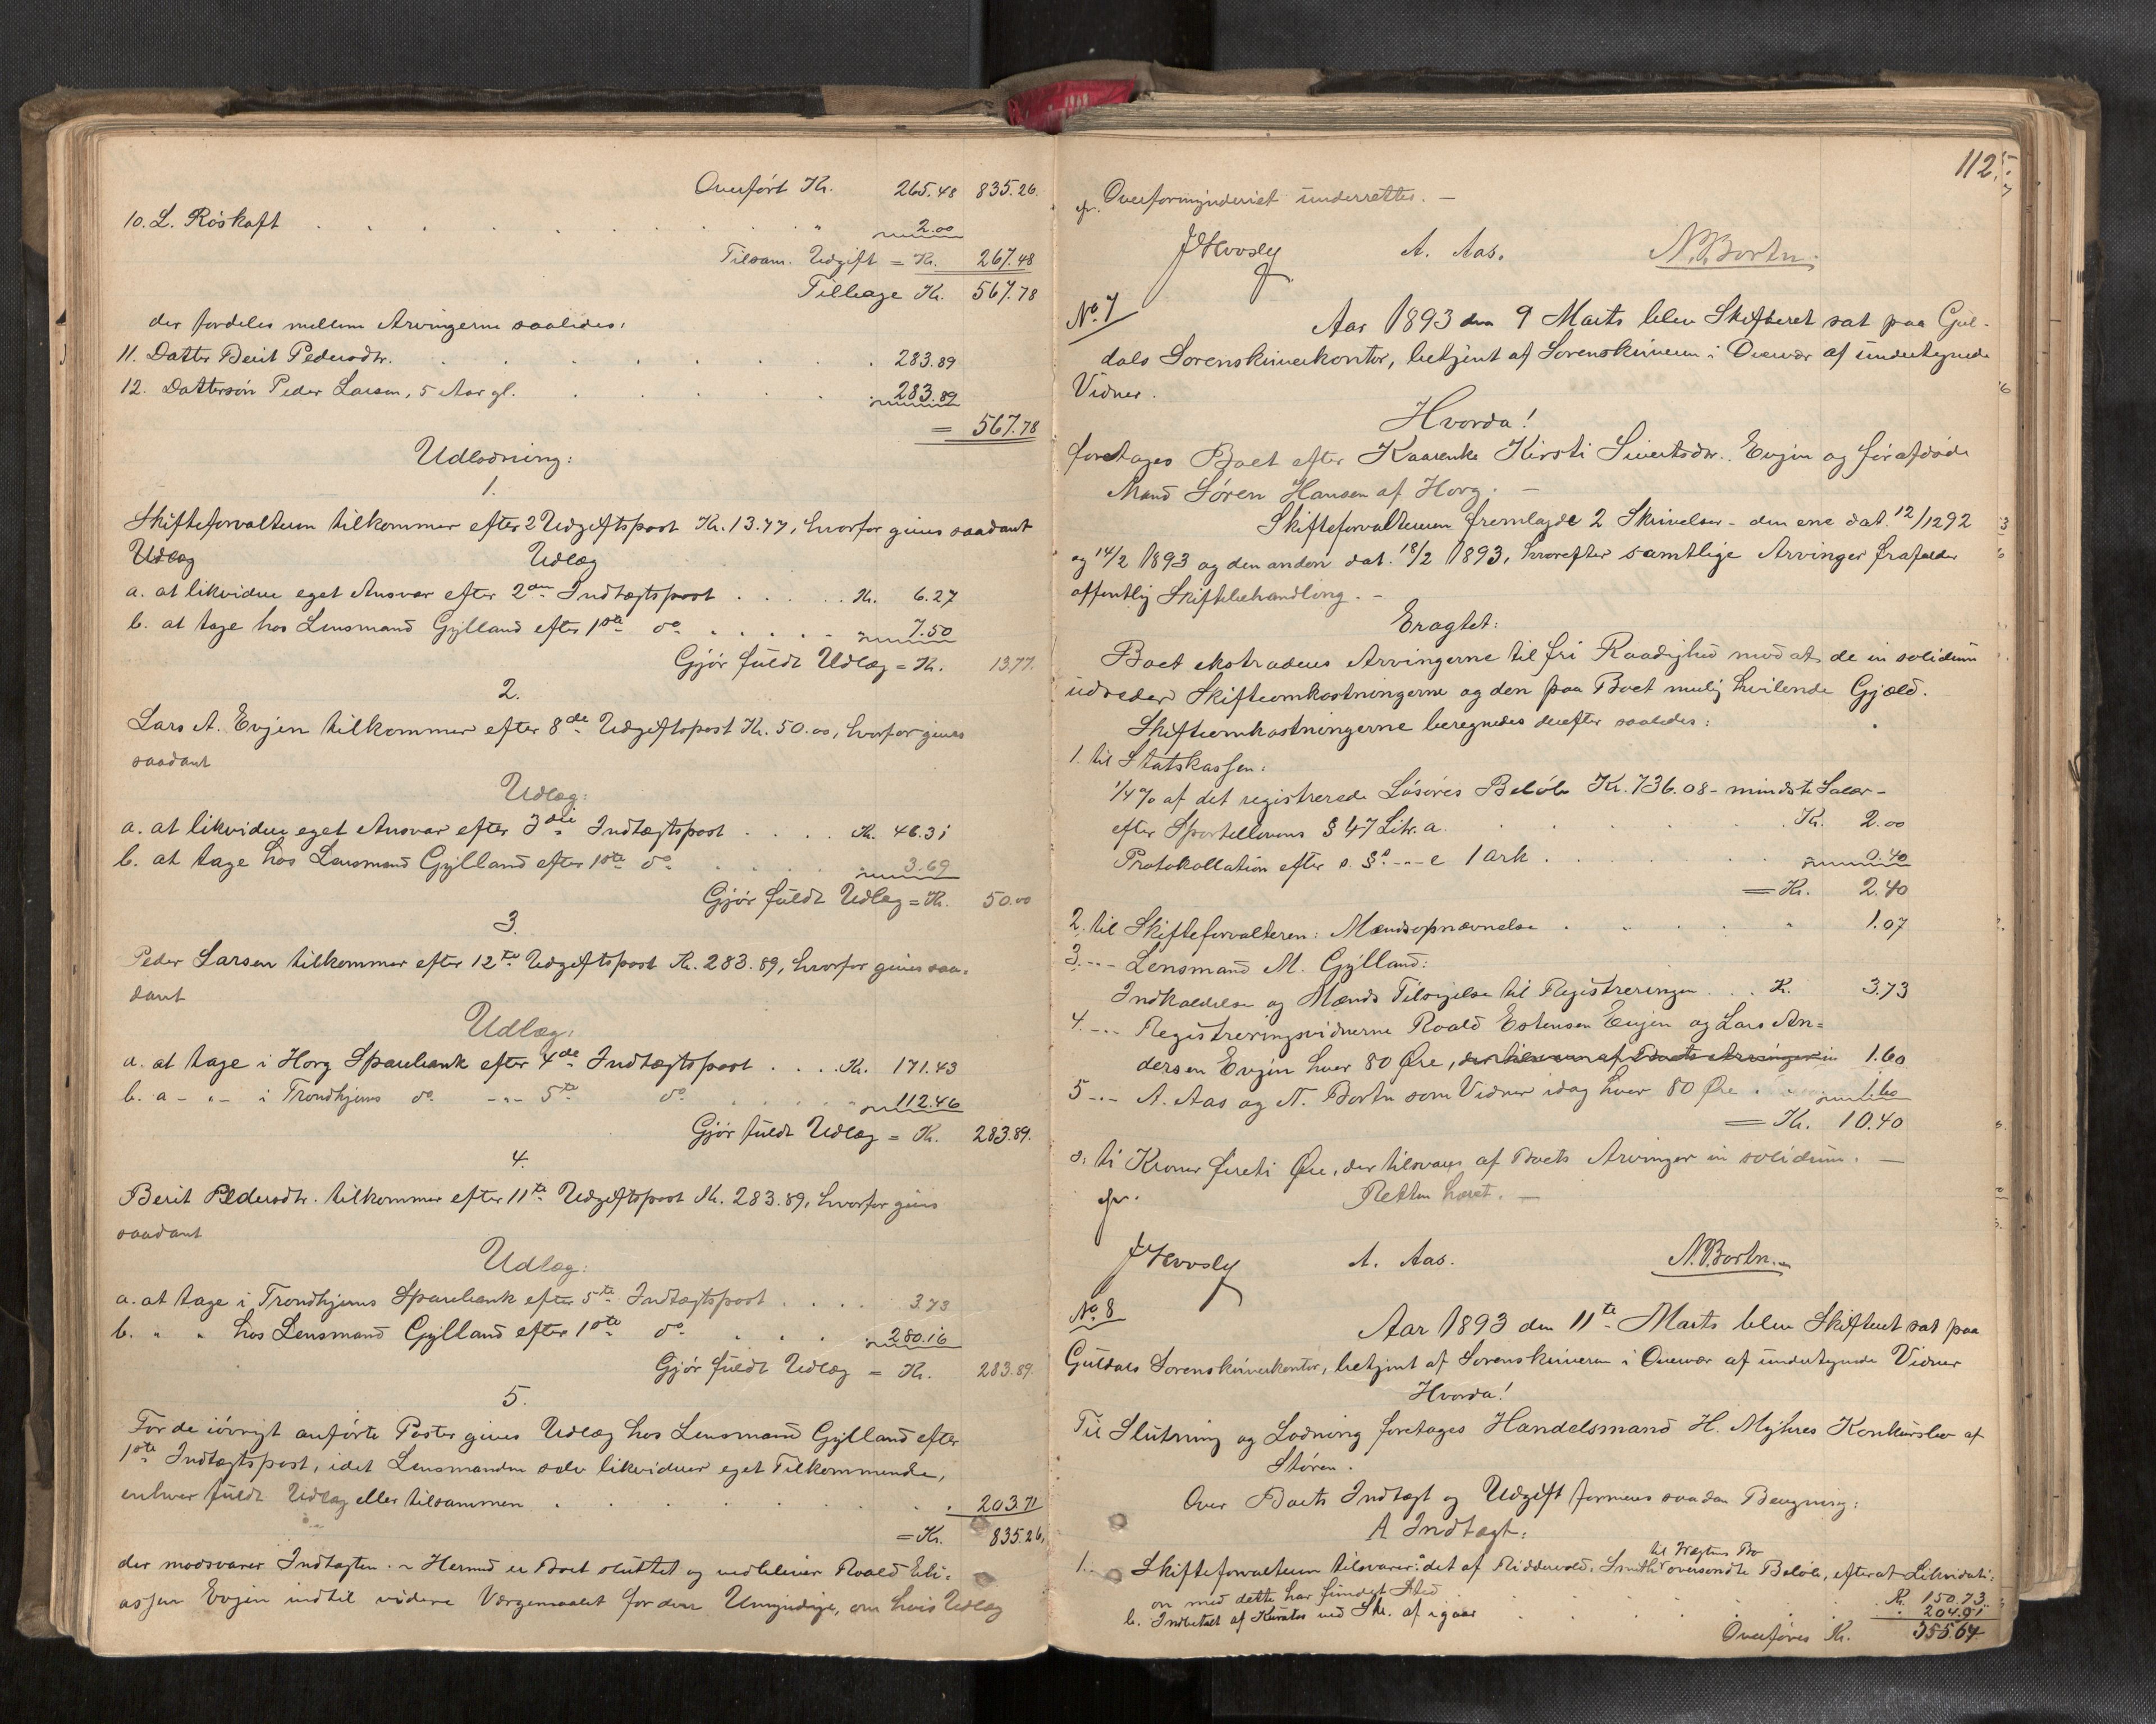 Overført Kr. 265.48 835.26.
10. L. Röskaft . . . . . . . . . " 2.00
Tilsam. Udgift = Kr. 267.48
Tilbage Kr. 567.78
der fordeles mellem Arvingerne saaledes:
11. Datter Berit Pedersdtr. . . . . . . . 283.89
12. Dattersön Peder Larsen, 5 Aar gl. . . . . . 283.89
= 567.78
Udlodning:
1.
Skifteforvalteren tilkommer efter 2 Udgiftspost Kr. 13.77, hvorfor gives saadant
Udlæg Udlæg
a. at likvidere eget Ansvar efter 2den Indtægtspost . . . . . Kr. 6.27
b. at tage hos Lensmand Gylland efter 1ste do. . . . . . 7.50
Gjör fuldt Udlæg = Kr. 13.77.
2.
Lars A. Evjen tilkommer efter 8de Udgiftspost Kr. 50.00, hvorfor gives
saadant
Udlæg:
a. at likvidere eget Ansvar efter 3die Indtægtspost . . . . Kr. 46.31
b. at tage hos Lensmand Gylland efter 1ste do. . . . . 3.69
Gjör fuldt Udlæg = Kr. 50.00
3.
Peder Larsen tilkommer efter 12te Udgiftspost Kr. 283.89, hvorfor gives saa-
dant
Udlæg:
a. at tage i Horg Sparebank efter 4de Indtægtspost . . . . Kr. 171.43
b. a - " - i Trondhjems do. -"- 5te do. . . . . . " 112.46
Gjör fuldt Udlæg = Kr. 283.89.
4.
Berit Pedersdtr. tilkommer efter 11te Udgiftspost Kr. 283.89, hvorfor gives
saadant
Udlæg:
a. at tage i Trondhjems Sparebank efter 5te Indtægtspost . . . . 3.73
b. " " hos Lensmand Gylland efter 1ste do. . . . . 280.16
Gjör fuldt Udlæg = Kr. 283.89.
5.
For de iövrigt anförte Poster gives Udlæg hos Lensmand Gylland efter
1ste Indtægtspost, idet Lensmanden selv likviderer eget Tilkommende,
enhver fuldt Udlæg eller tilsammen . . . . . . . . 203.71
= Kr. 835.26.
der modsvarer Indtægten. - Hermed er Boet sluttet og vedbliver Roald Eli-
assen Evjen indtil videre Værgemaalet for den Umyndige, om hvis Udlæg
112.
Overformynderiet underrettes. -
A. Aas. N. Bortn.
No. 7
Aar 1893 den 9 Marts blev Skifteret sat paa Gul-
dals Sorenskriverkontor, betjent af Sorenskriveren i Overvær af undertegnede
Vidner.
Hvorda!
foretages Boet efter Kaarenke Kirsti Sivertsdtr. Evjen og förafdöde
Mand Sören Hansen af Horg. -
Skifteforvalteren fremlagde 2 Skrivelser - den ene dat. 12/12 92
og 14/2 1893 og den anden dat. 18/2 1893, hvorefter samtlige Arvinger frafalder
offentlig Skiftebehandling. -
Eragtet:
Boet ekstraderes Arvingerne til fri Raadighed mod at de in solidum
udreder Skifteomkostningerne og den paa Boet mulig hvilende Gjæld.
Skifteomkostningerne beregnedes derefter saaledes:
1. til Statskassen:
1/4 % af det registrerede Lösöres Belöb Kr. 736.08 - mindste Salær -
efter Sportellovens § 47 Litr. a. . . . . . Kr. 2.00
Protokollation efter s. § -"- e 1 ark . . . . . 0.40
= Kr. 2.40
2. til Skifteforvalteren: Mændsopnævnelse . . . . . 1.07
3. -"- Lensmand M. Gylland:
Indkaldelse og Mænds Tilsigelse til Registreringen . . Kr. 3.73
4. -"- Registreringsvidnerne Roald Estensen Evjen og Lars An-
dersen Evjen hver 80 Öre, der tilsvares af Boets Arvinger in 1.60
5 -"- A. Aas og N. Bortn som Vidner idag hver 80 Öre . . . 1.60
= Kr. 10.40
s: ti Kroner fireti Öre, der tilsvares af Boets Arvinger in solidum. -
Retten hævet. -
A. Aas. N. Bortn.
No. 8
Aar 1893 den 11te Marts blev Skifteret sat paa
Guldals Sorenskriverkontor, betjent af Sorenskriveren i Overvær af undertegnede Vidner
Hvorda!
Til Slutning og Lodning foretages Handelsmand H. Myhres Konkursbo af
Stören.
Over Boets Indtægt og Udgift formeres saadan Beregning:
A Indtægt:
1. a Skifteforvalteren tilsvarer: det af Riddervold, Smith oversendte Belöb, efterat Likvidati-
on med dette har fundet Sted . . . . . . Kr. 150.73
b. Indbetalt af Kurator ved Skr. af igaar . . . . . . 204.91
Overföres Kr. 355.64